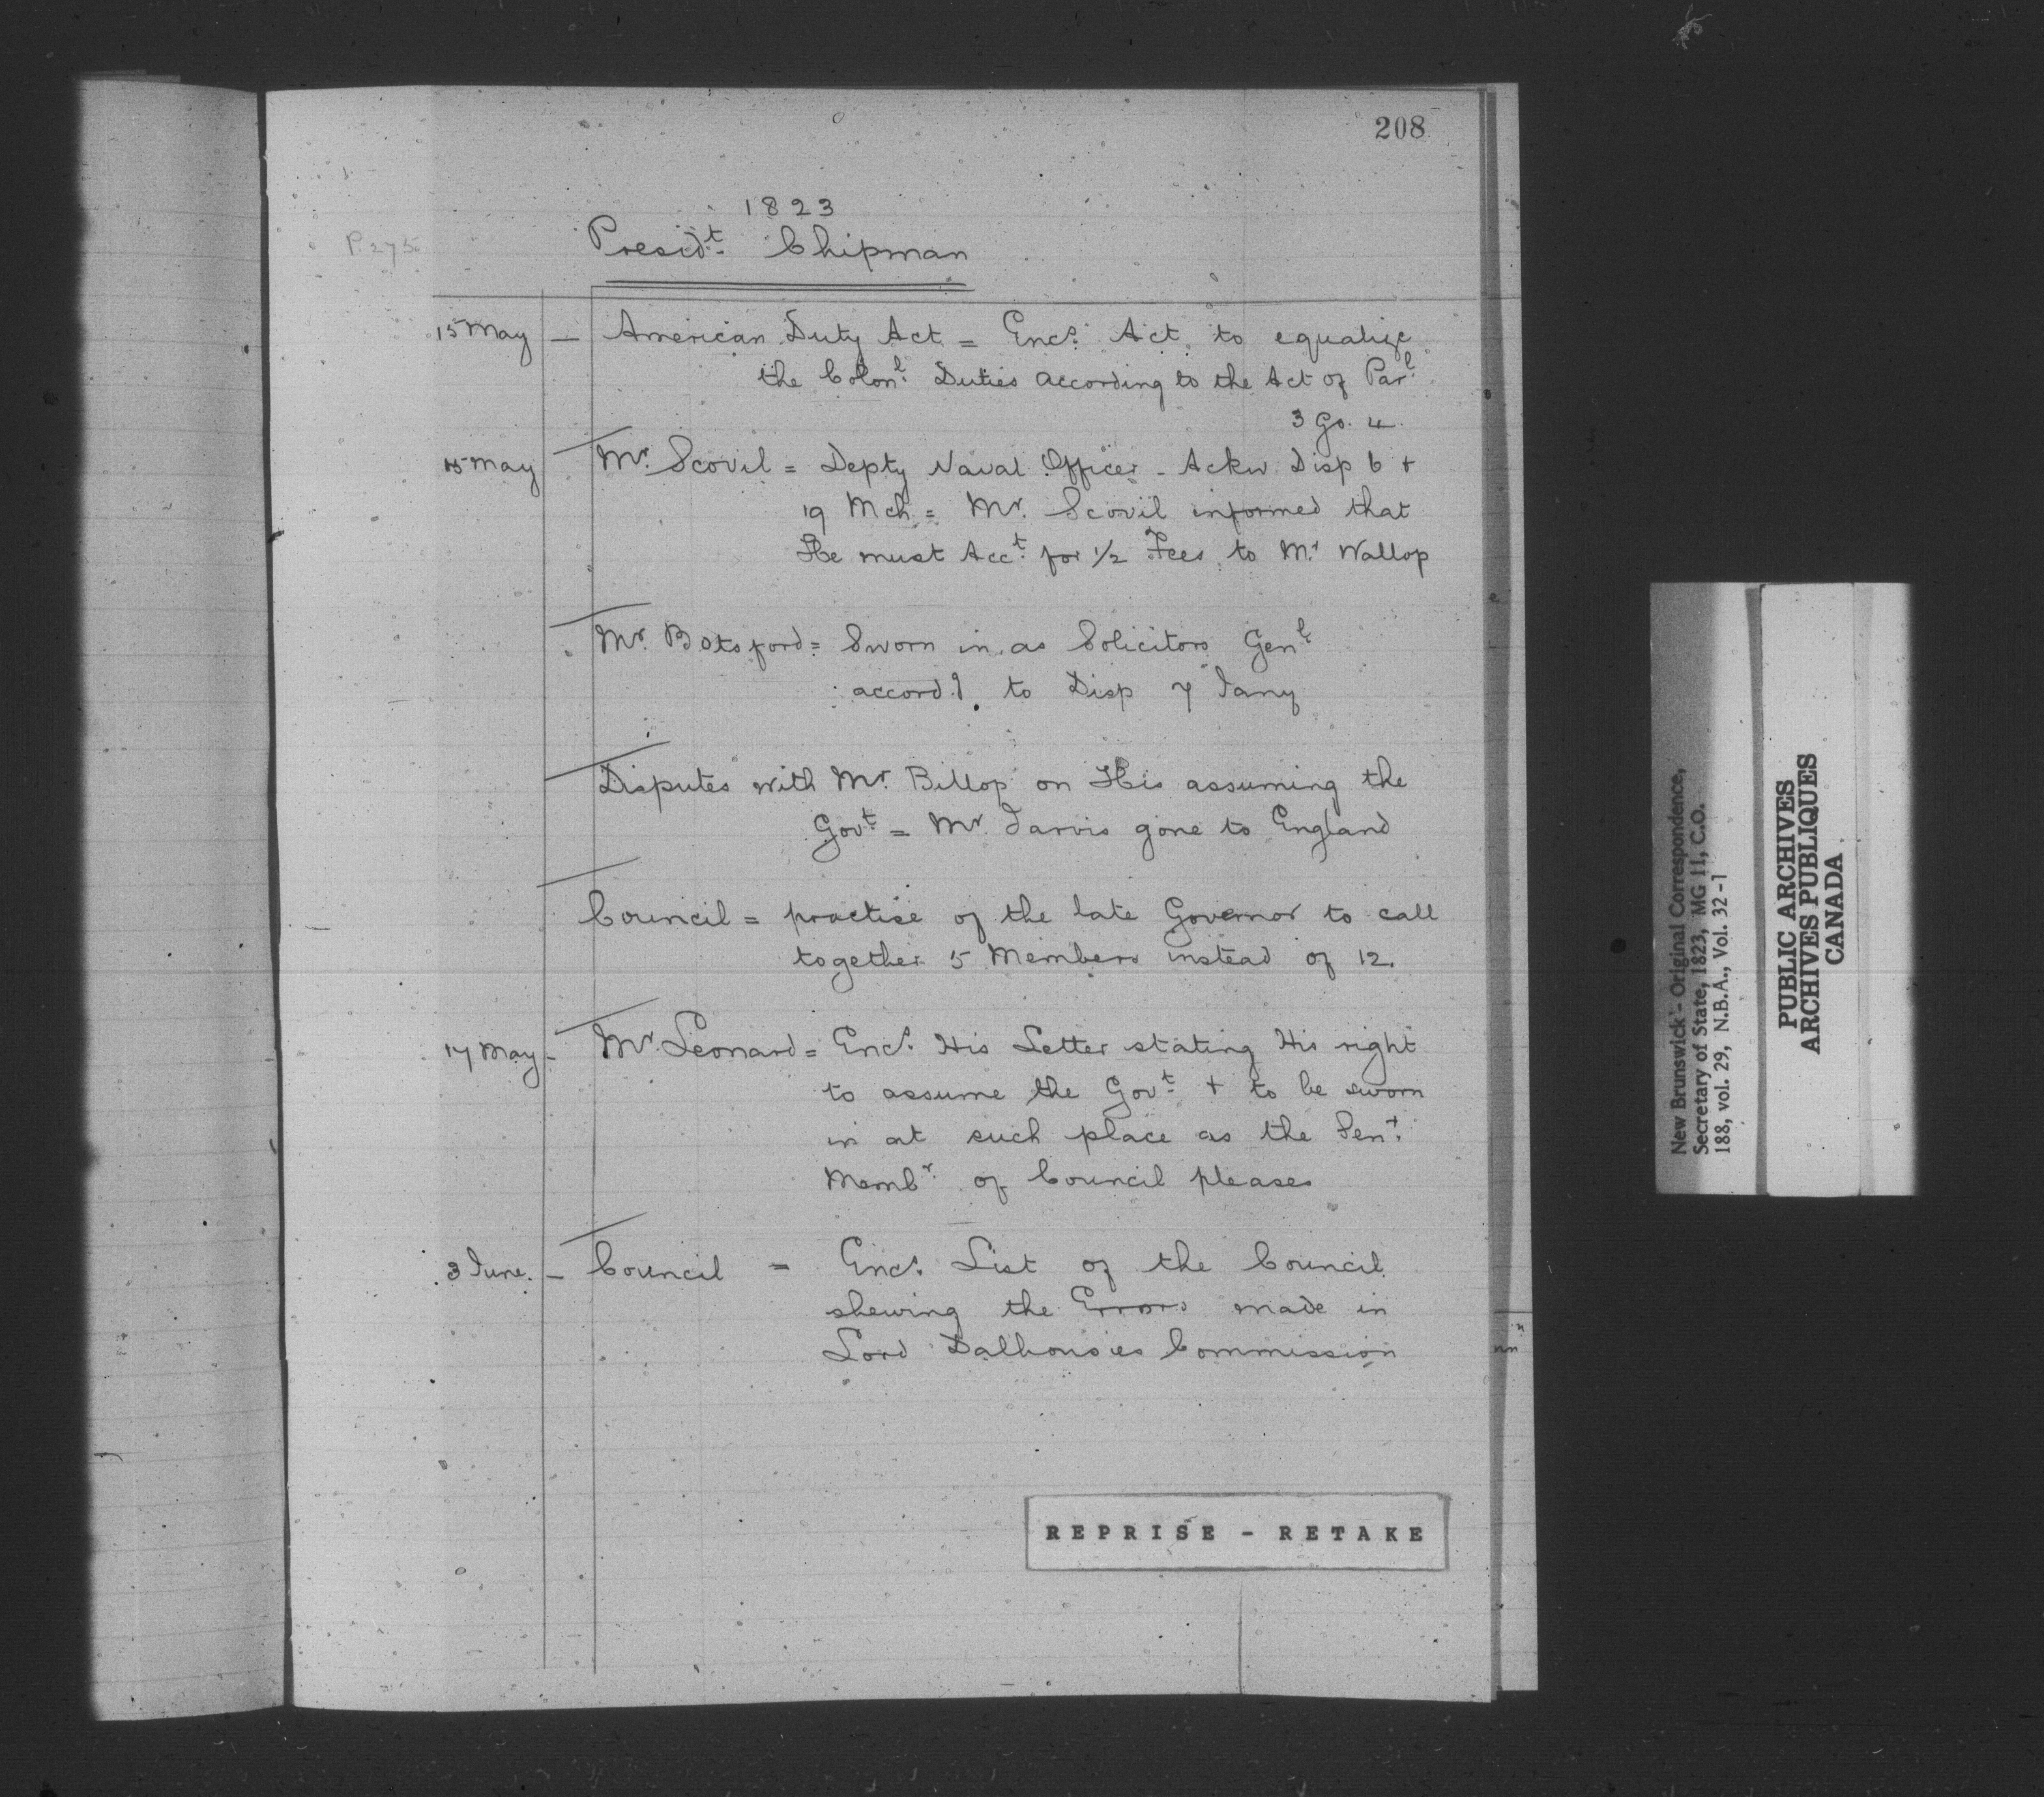 208
P. 275
1823
Presidt. Chipman
15 May — American Duty Act = Encs. Act to equalize
the Colonl. Duties according to the Act of Parl.
3 Go. 4.
15 May Mr. Scovil = Depty Naval Officer - Ackw Disp 6 +
19 Mch = Mr. Scovil informed that
He must Acct. for 1/2 Fees to Mr. Wallop
Mr. Botsford = Sworn in as Solicitors Genl.
accordg. to Disp 7 Jany
Disputes with Mr. Billop on His assuming the
Govt. = Mr. Jarvis gone to England
Council = practise of the late Governor to call
together 5 Members instead of 12.
17 May - Mr. Leonard = Encs. His Letter stating His right
to assume the Govt. + to be sworn
in at such place as the Senr.
Membr. of Council pleases
3 June. - Council = Encs. List of the Council
shewing the Errors made in
Lord Dalhousies Commission
REPRISE - RETAKE
New Brunswick - Original Correspondence,
Secretary of State, 1823, MG 11, C.O.
188, vol. 29, N.B.A., Vol. 32-1
PUBLIC ARCHIVES
ARCHIVES PUBLIQUES
CANADA